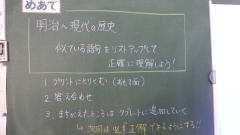 めあて
明治~現代の歴史
似ている語句をリストアップして
正確に理解しよう!
1. プリントにとりくむ(おもて面)
2. 答え合わせ
3. まちがえたところはタブレートに追加していく
↳次回は必ず正解できるようにする!!